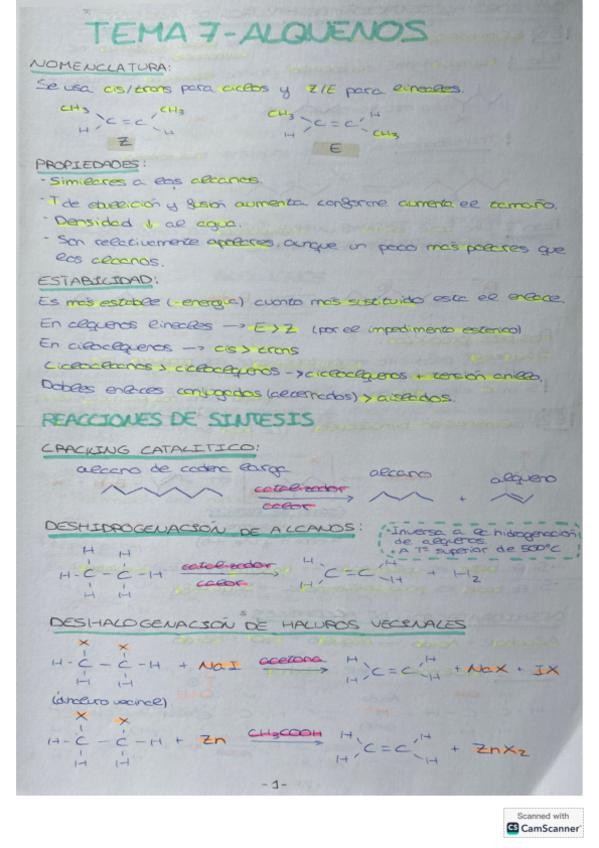 TEMA 7-ALQUENOS
NOMENCLATURA:
Se usa cis/trans para ciclos y Z/E para lineales.
CH3 CH3 CH3 H
C=C C=C
H H H CH3
Z E
PROPIEDADES:
- Similares a los alcanos.
- T de ebullición y fusión aumenta conforme aumenta el tamaño.
- Densidad ↓ al agua.
- Son relativamente apolares, aunque un poco más polares que
los alcanos.
ESTABILIDAD:
Es más estable (-energía) cuanto más sustituido esta el enlace.
En alquenos lineales → E>Z (por el impedimento esterico)
En cicloalquenos → cis > trans
Cicloalcanos > cicloalquenos → cicloalquenos + torsión anillo.
Dobles enlaces conjugados (alternados) > aislados.
REACCIONES DE SINTESIS
CRACKING CATALITICO:
alcano de cadena larga alcano alqueno
catalizador
calor
+
DESHIDROGENACIÓN DE ALCANOS:
- Inversa a la hidrogenación
de alquenos.
- A Tª superior de 500°C
H H
H-C-C-H catalizador H C=C H + H2
H H calor H H
DESHALOGENACIÓN DE HALUROS VECINALES
X X
H-C-C-H + NaI acetona H C=C H + NaX + IX
H H H H
(dihaluro vecinal)
X X
H-C-C-H + Zn CH3COOH H C=C H + ZnX2
H H H H
-1-
Scanned with
CS CamScanner